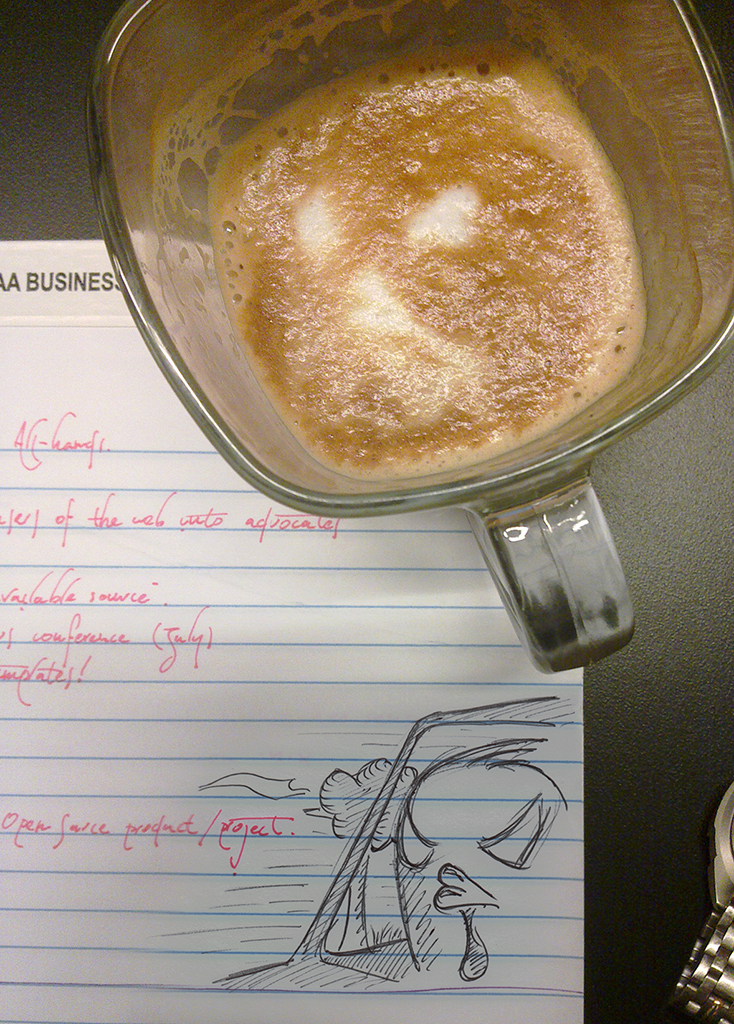 AA BUSINESS
All-hands.
users of the web into advocates
available source".
conference (July)
templates!
Open Source product/project.